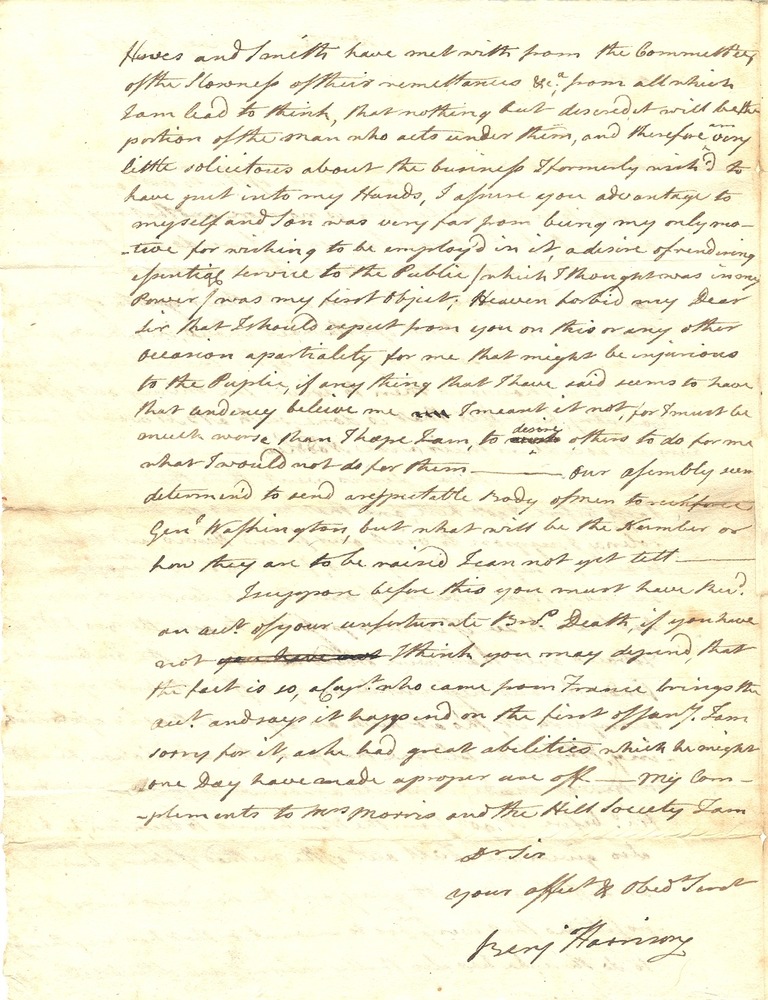 Hewes and Smith have met with from the Committee,
of the Slowness of their remettances &c.a from all which
I am lead to think, that nothing but discredit will be the
portion of the man who acts under them, and therefore am very
little solicitous about the business I formerly wish'd to
have put into my Hands, I assure you advantage to
myself and Son was very far from being my only mo-
-tive for wishing to be employ'd in it, a desire of rendering
essential service to the Public /which I thought was in my
Power/ was my first Object; Heaven forbid my Dear
Sir that I should expect from you on this or any other
occasion a partiality for me that might be injurious
to the Public, if any thing that I have said seems to have
that tendency beleive me I meant it not, for I must be
much worse than I hope I am, to desire others to do for me
what I would not do for them —— our assembly seem
determind to send a respectable Body of men to reinforce
Genl Washington, but what will be the Number or
how they are to be raised I can not yet tell ——
I suppose before this you must have Recd.
an acct. of your unfortunate Bros. Death, if you have
not you have not I think you may depend, that
the fact is so, a Capt. who came from France brings the
acct. and says it happend on the first of Jany. I am
sorry for it, as he had great abilities which he might
one Day have made a proper use off — My Com-
-plements to Mrs Morris and the Hill Society I am
Dr Sir
your affect & Obedt Servt
Benj Harrison